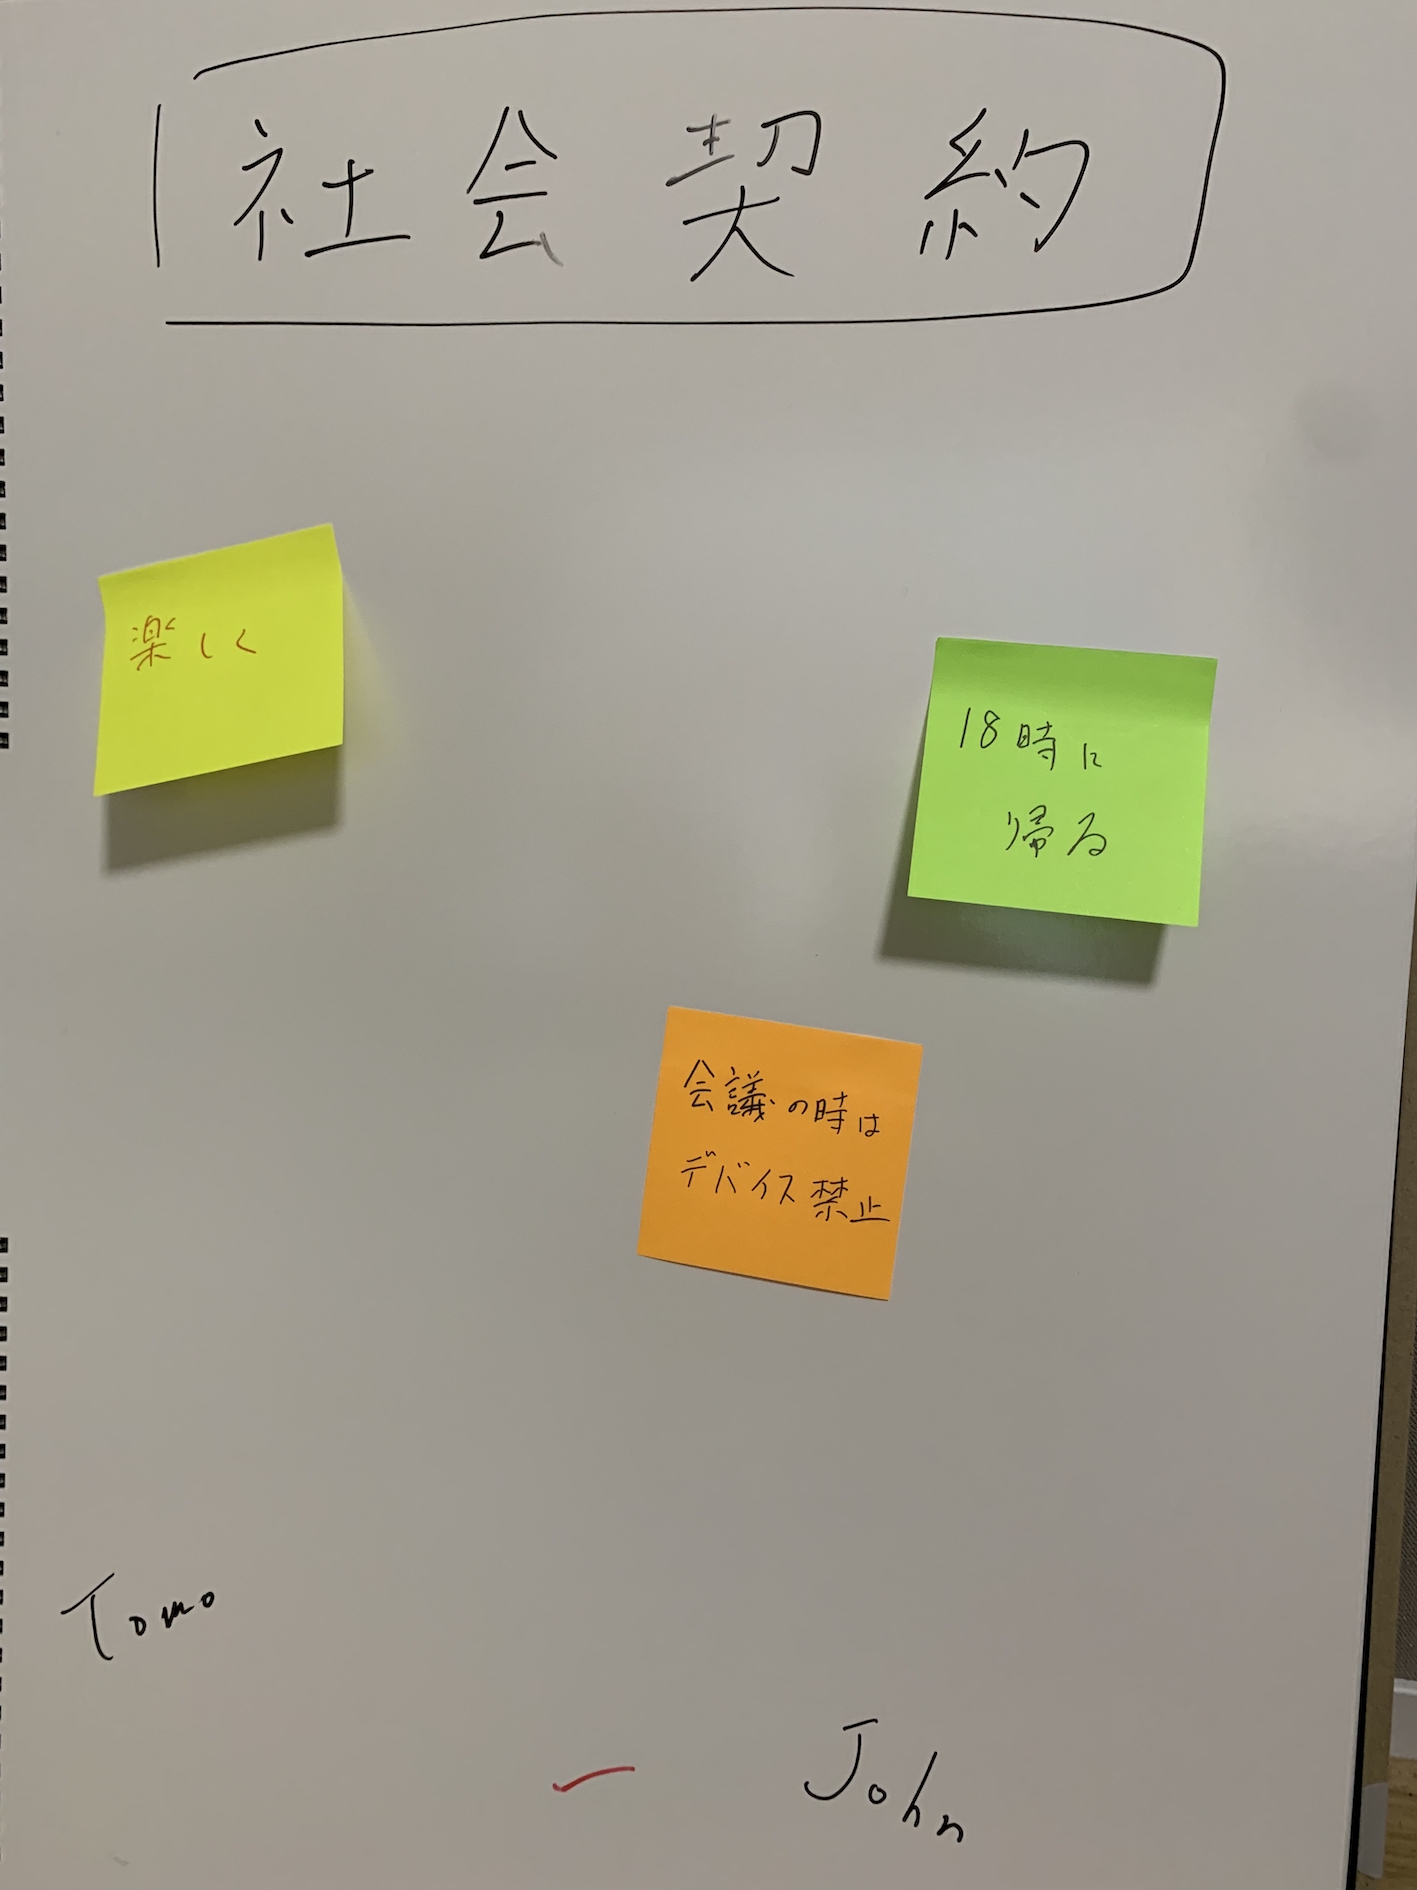 社会契約
楽しく
18時に
帰る
会議の時は
デバイス禁止
Tomo
John